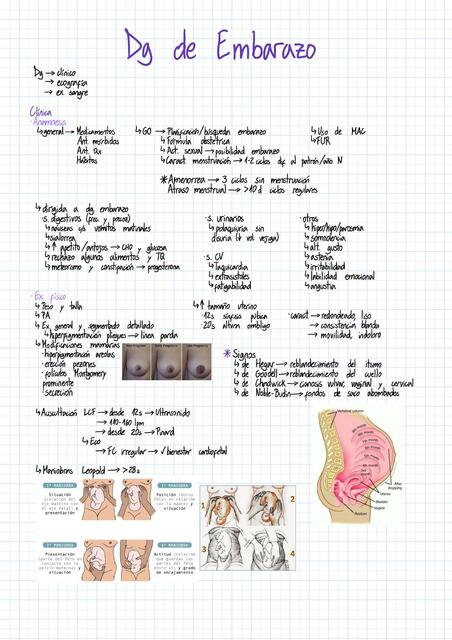 Dg de Embarazo
Dg → clínico
→ ecografía
→ ex sangre
Clínica
· Anamnesis
↳ general → Medicamentos
Ant. mórbidos
Ant. Qx
Hábitos
↳ GO → Planificación/búsqueda embarazo
↳ Fórmula obstétrica
↳ Act. sexual → posibilidad embarazo
↳ Caract menstruación → 1-2 ciclos
↳ Uso de MAC
↳ FUR
* Amenorrea → 3 ciclos sin menstruación
Atraso menstrual → >10d ciclos regulares
↳ dirigida a dg embarazo
· s. digestivos (frec. y precoz)
↳ náuseas vómitos matinales
↳ sialorrea
↳ ↑ apetito/antojos → CHO y glucosa
↳ rechazo algunos alimentos y
↳ meteorismo y constipación → progesterona
· s. urinarios
↳ polaquiuria sin
disuria
· s. CV
↳ Taquicardia
↳ extrasístoles
↳ fatigabilidad
· otros
↳ somnolencia
↳ alt. gusto
↳ astenia
↳ irritabilidad
↳ labilidad emocional
↳ angustia
· Ex físico
↳ Peso y talla
↳ PA
↳ Ex general y segmentado detallado
↳ hiperpigmentación pliegues → línea parda
↳ Modificaciones mamarias
· hiperpigmentación areolas
· erección pezones
· folículos Montgomery
prominente
· secreción
↳ ↑ tamaño uterino
· 12s sínfisis púbica
· 20s altura ombligo
· caract → redondeado, liso
→ consistencia blanda
→ movilidad, indoloro
* Signos
↳ de Hegar → reblandecimiento del itsmo
↳ de Goodell → reblandecimiento del cuello
↳ de Chadwick → cianosis vulvar, vaginal y cervical
↳ de Noble-Budin → fondos de saco abombados
↳ Auscultación LCF → desde 12s → Ultrasonido
→ 110-160 lpm
→ desde 20s → Pinard
↳ Eco
→ FC irregular → √ bienestar cardiofetal
↳ Maniobras Leopold → >28s
1ª MANIOBRA
Situación
(relación del
eje materno con
el eje fetal) y
presentación
2ª MANIOBRA
Posición (dorso
fetal en relación
con la mamá) y
situación
3ª MANIOBRA
Presentación
(parte del feto en
contacto con la
pelvis materna) y
situación
4ª MANIOBRA
Actitud (relación
que guardan las
partes del feto
entre sí) y grado
de encajamiento
1
2
3
4
Vertebral column
9th month
8th month
7th month
6th month
5th month
4th month
3rd month
After
dropping
Uterus
Bladder
Vagina
Rectum